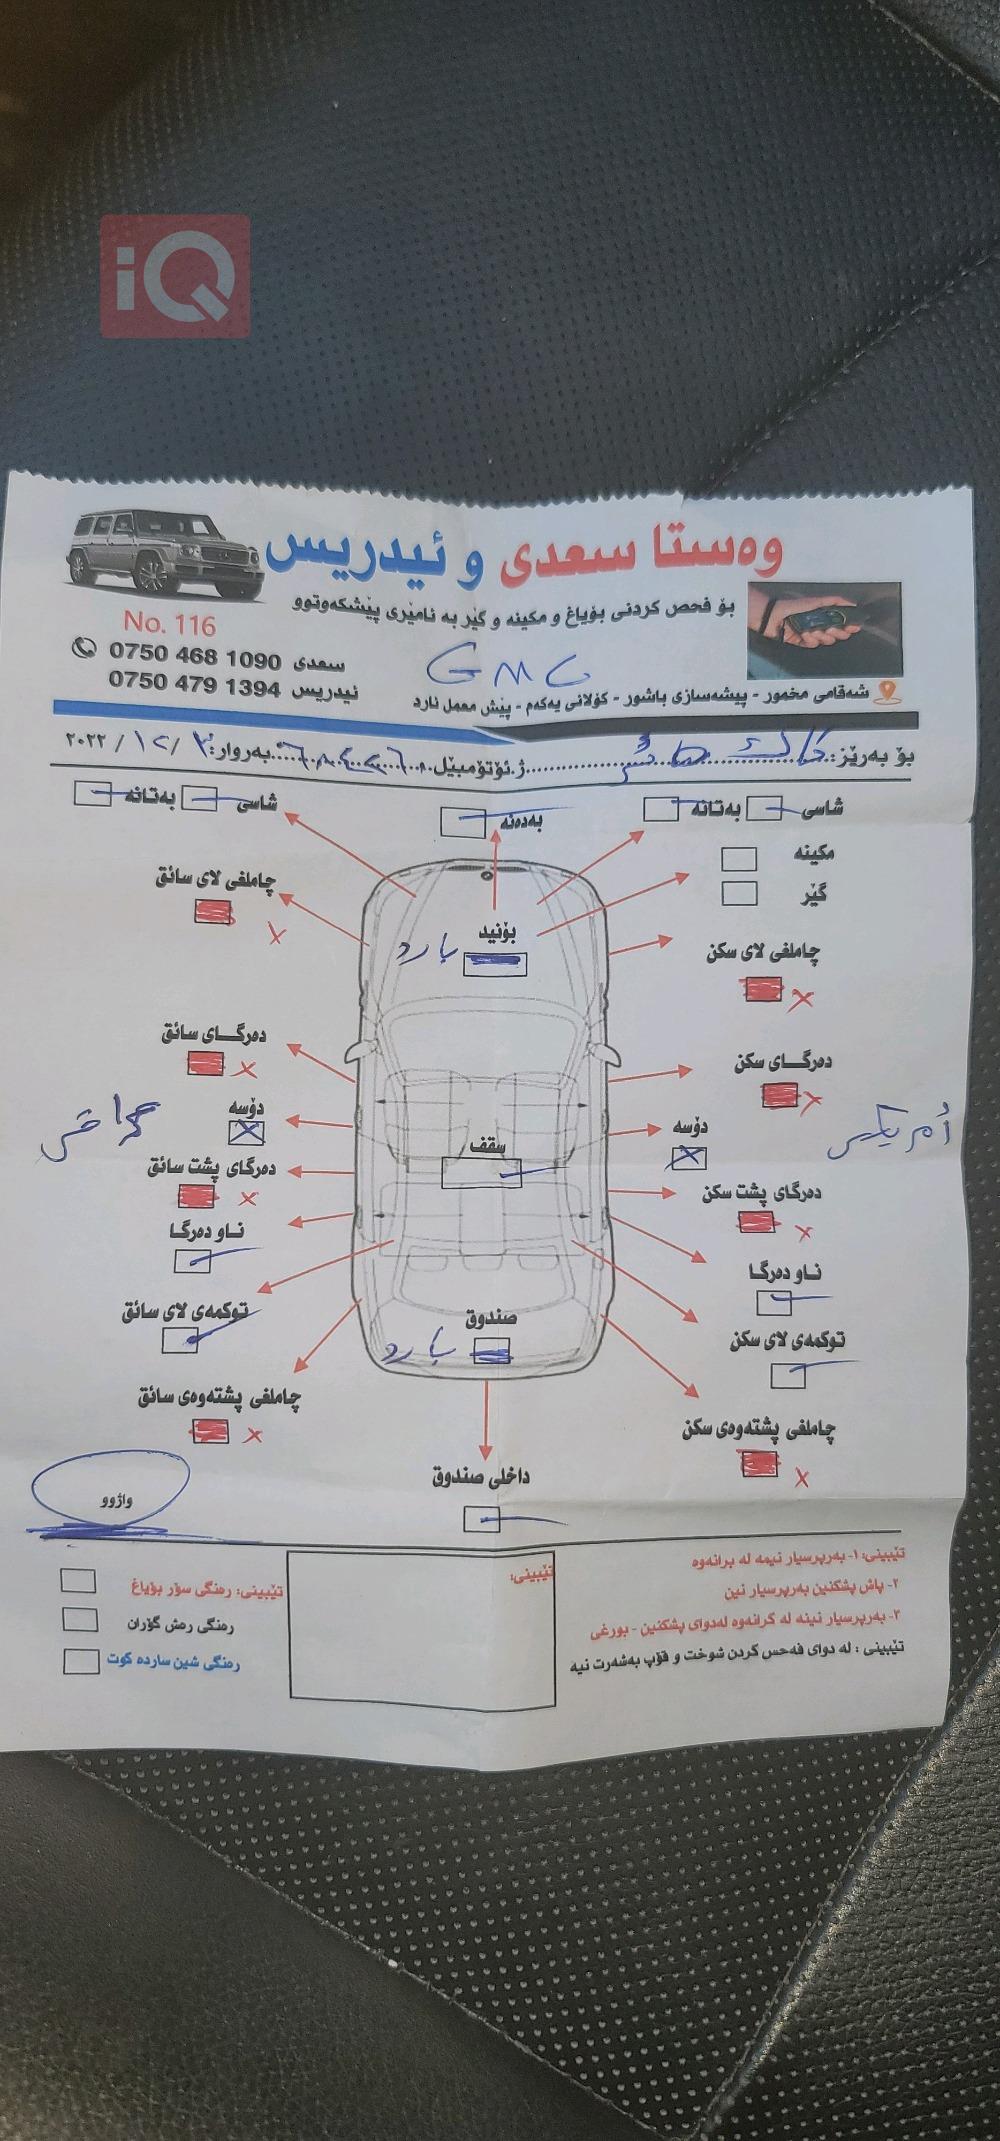 iQ
وەستا سعدی و ئیدریس
بۆ فحص کردنی بۆیاغ و مکینە و گێر بە ئامێری پێشکەوتوو
No. 116
سعدی 0750 468 1090
ئیدریس 0750 479 1394
GMC
شەقامی مخمور - پیشەسازی باشور - کۆلانی یەکەم - پێش معمل ئارد
بۆ بەرێز:
ژ.ئۆتۆمبێل
بەروار: ٣ / ١٢ / ٢٠٢٢
شاسی بەتانە
بەدەنە
شاسی بەتانە
مکینە
گێر
چاملغی لای سائق
بۆنید
بارد
چاملغی لای سکن
دەرگای سائق
دەرگای سکن
دۆسە
سقف
دۆسە
أمریکی
دەرگای پشت سائق
دەرگای پشت سکن
ناو دەرگا
ناو دەرگا
توکمەی لای سائق
صندوق
بارد
توکمەی لای سکن
چاملغی پشتەوەی سائق
چاملغی پشتەوەی سکن
داخلی صندوق
واژوو
تێبینی: ١- بەرپرسیار نیمە لە برانەوە
٢- پاش پشکنین بەرپرسیار نین
٣- بەرپرسیار نینە لە گرانەوە لەدوای پشکنین - بورغی
تێبینی : لە دوای فەحس کردن شوخت و قۆپ بەشەرت نیە
تێبینی:
تێبینی: رەنگی سۆر بۆیاغ
رەنگی رەش گۆران
رەنگی شین ساردە کوت